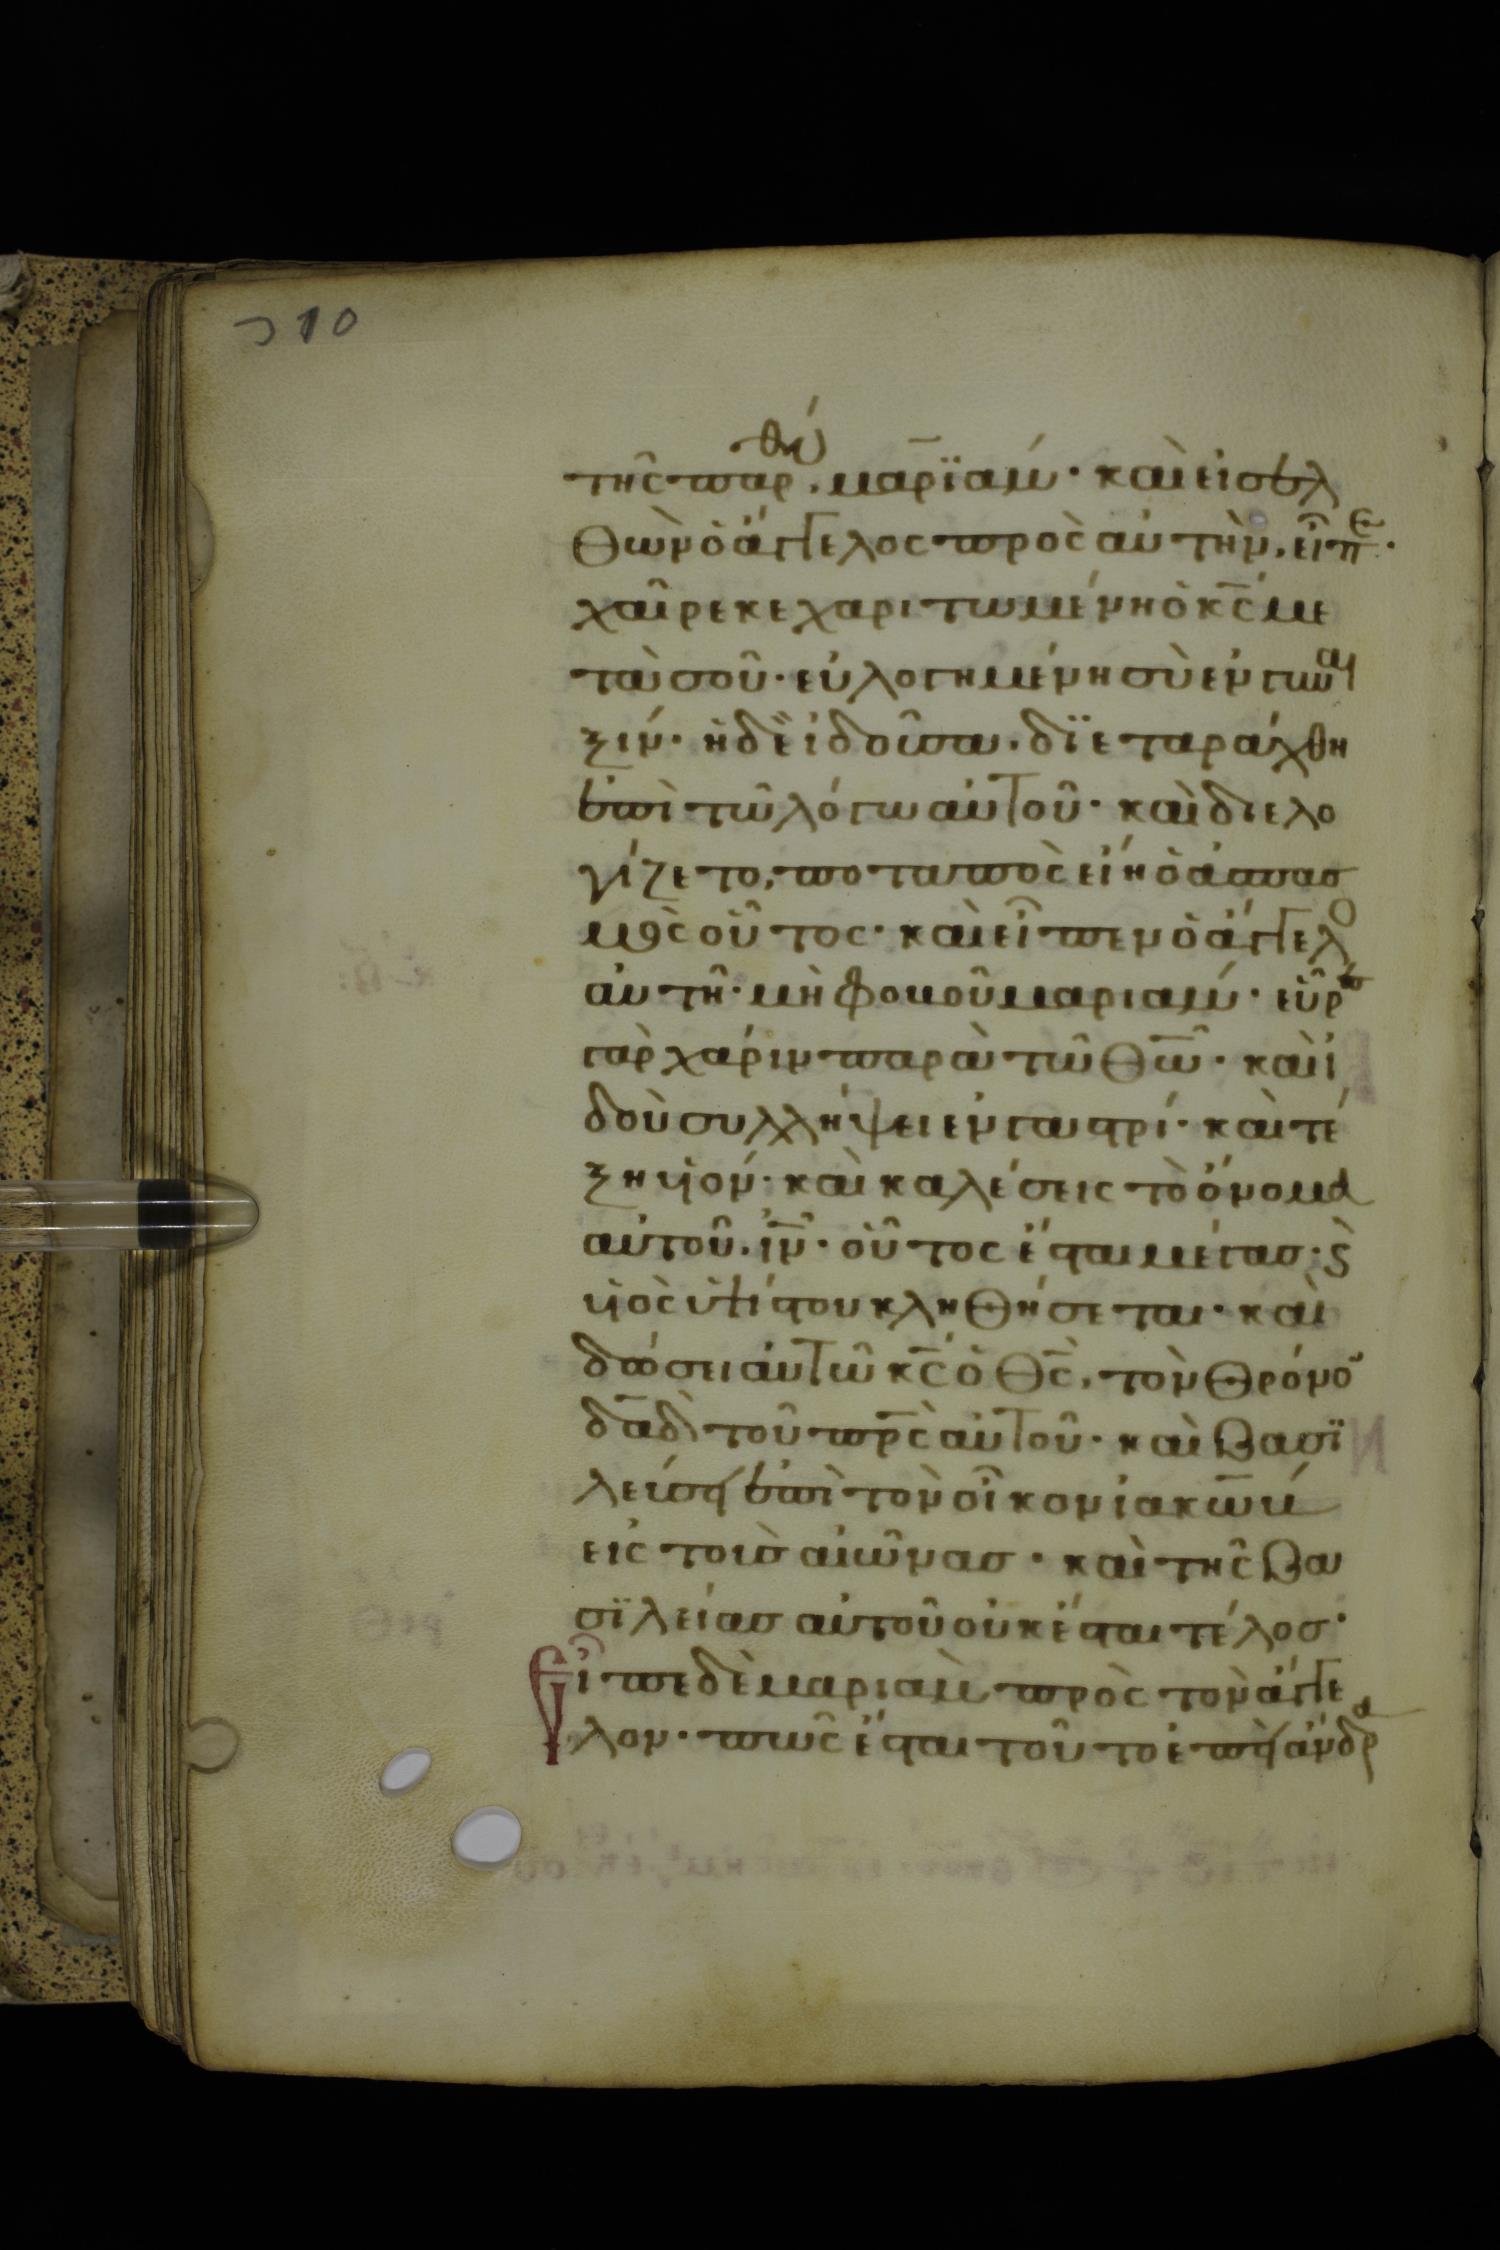 310
τῆς παρθένου, μαρϊάμ· καὶ εἰσελ
θὼν ὁ ἄγγελος πρὸς αὐτὴν, εἶπε·
χαῖρε κεχαριτωμένη ὁ κ̅ς̅ με
τὰ σοῦ· εὐλογημένη σὺ ἐν γυναι
ξίν· ἡ δὲ ἰδοῦσα, διεταράχθη
ἐπὶ τῶ λόγω αὐτοῦ· καὶ διελο
γίζετο, ποταπὸς εἴη ὁ ἀσπασ
μὸς οὗτος· καὶ εἶπεν ὁ ἄγγελο
αὐτῆ· μὴ φοβοῦ μαριάμ· εὗρες
γὰρ χάριν παρὰ τῶ θ̅ω̅· καὶ ἰ
δοὺ συλλήψει ἐν γαστρί· καὶ τέ
ξη υἱόν· καὶ καλέσεις τὸ ὄνομα
αὐτοῦ, ι̅ν̅· οὗτος ἔσται μέγας· ϗ
υἱὸς ὑψίστου κληθήσεται· καὶ
δώσει αὐτῶ κ̅ς̅ ὁ θ̅ς̅, τὸν θρόνο
δ̅α̅δ̅ τοῦ π̅ρ̅ς̅ αὐτοῦ· καὶ βασϊ
λεύση ἐπὶ τὸν οἶκον ἰακώβ
εἰς τοὺς αἰῶνας· καὶ τῆς βα
σϊλείας αὐτοῦ οὐκ ἔσται τέλος·
Εἶπε δὲ μαριὰμ πρὸς τὸν ἄγγε
λον· πῶς ἔσται τοῦτο ἐπεὶ ἄνδρα